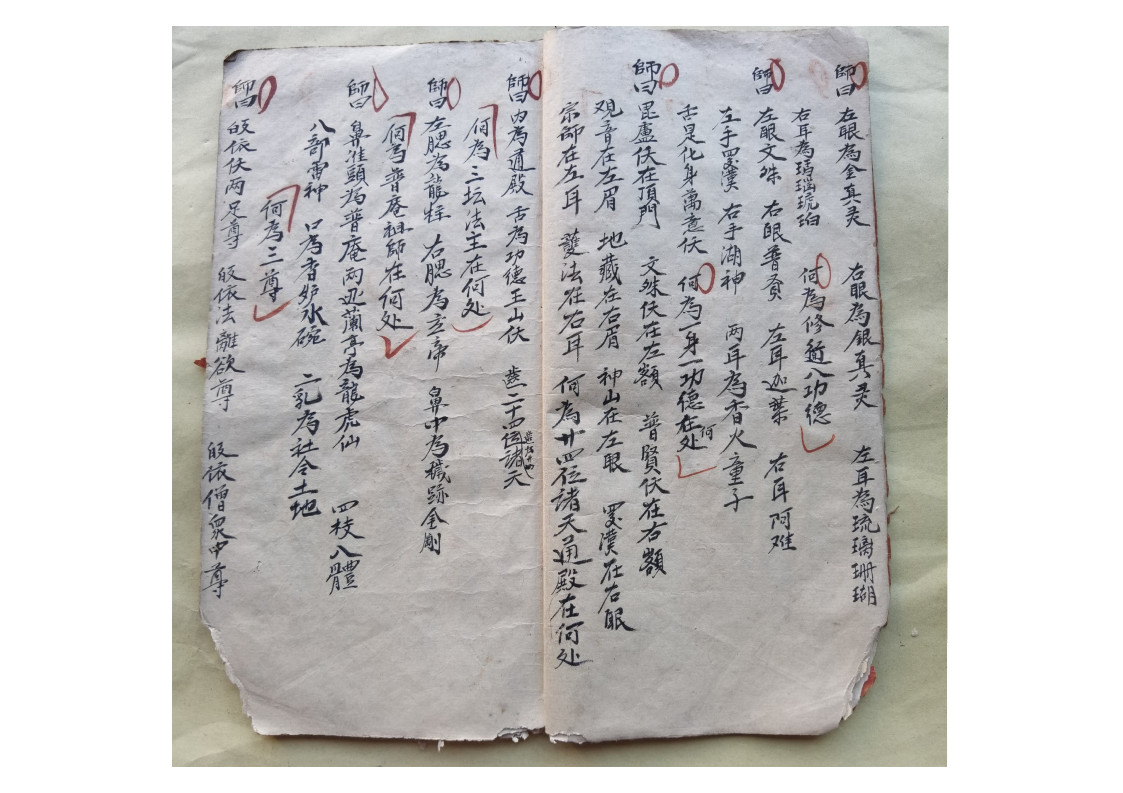 師曰 左眼為金真灵 右眼為銀真灵 左耳為琉璃珊瑚
右耳為瑪瑙琥珀 何為修道八功德
師曰 左眼文殊 右眼普賢 左耳迦葉 右耳阿难
左手羅漢 右手湖神 两耳為香火童子
舌是化身萬意伕 何為一身一功德在何处
師曰 毘盧伕在頂門 文殊伕在左額 普賢伕在右額
观音在左眉 地藏在右眉 神山在左眼 羅漢在右眼
宗師在左耳 護法在右耳 何為廿四位諸天通殿在何处
師曰 内為通殿 舌為功德王山伕 齒二十四位諸天
何為三坛法主在何处
師曰 左腮為龍牲 右腮為玄帝 鼻中為穢跡金剛
何為普庵祖師在何处
師曰 鼻准頭為普庵 两边蘭亭為龍虎仙 四枝八體
八部雷神 口為香炉水碗 二乳為社令土地
何為三尊
師曰 皈依伕两足尊 皈依法離欲尊 皈依僧衆中尊